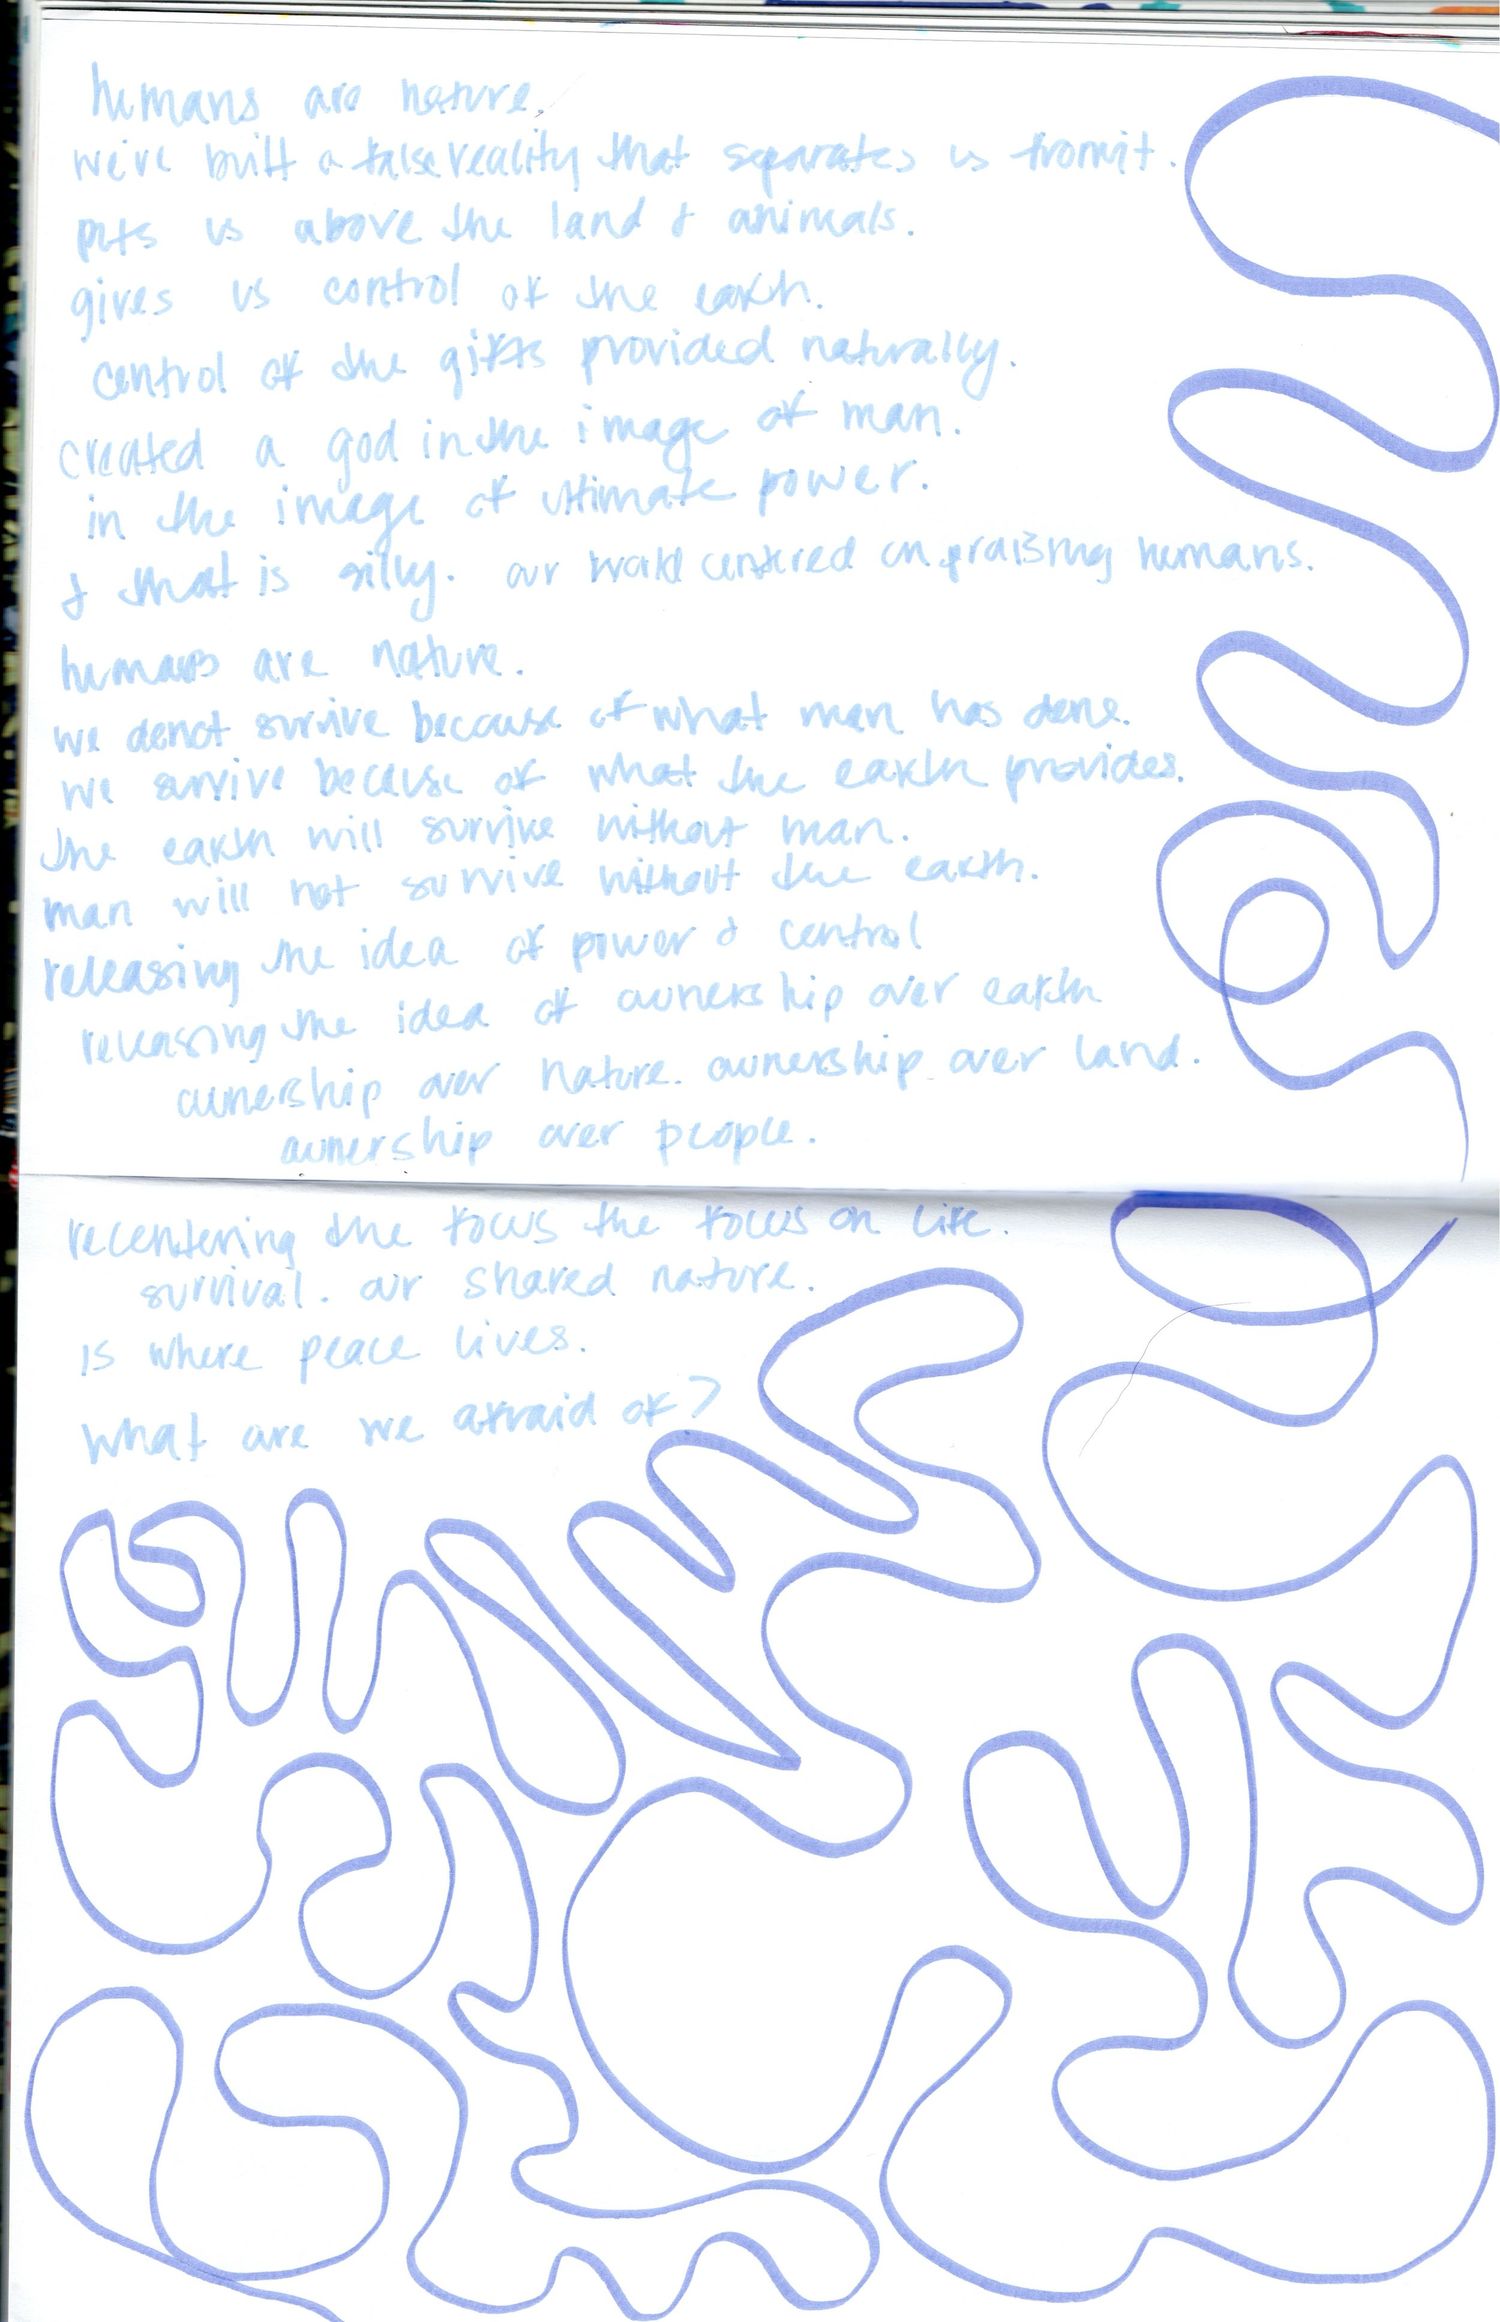 humans are nature.
we've built a false reality that separates us from it.
puts us above the land & animals.
gives us control of the earth.
control of the gifts provided naturally.
created a god in the image of man.
in the image of ultimate power.
& that is silly. our world centered on praising humans.
humans are nature.
we do not survive because of what man has done.
we survive because of what the earth provides.
the earth will survive without man.
man will not survive without the earth.
releasing the idea of power & control
releasing the idea of ownership over earth
ownership over nature. ownership over land.
ownership over people.
recentering the focus the focus on life.
survival. our shared nature.
is where peace lives.
what are we afraid of?